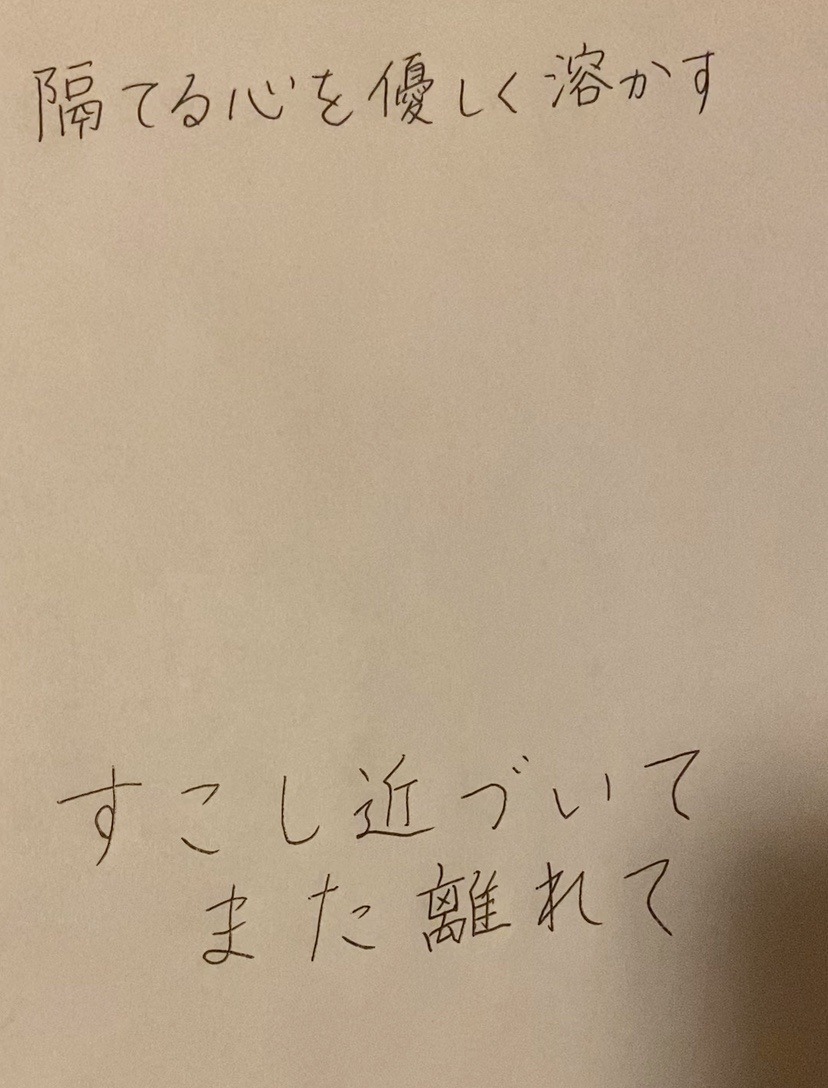 隔てる心を優しく溶かす
すこし近づいて
また離れて